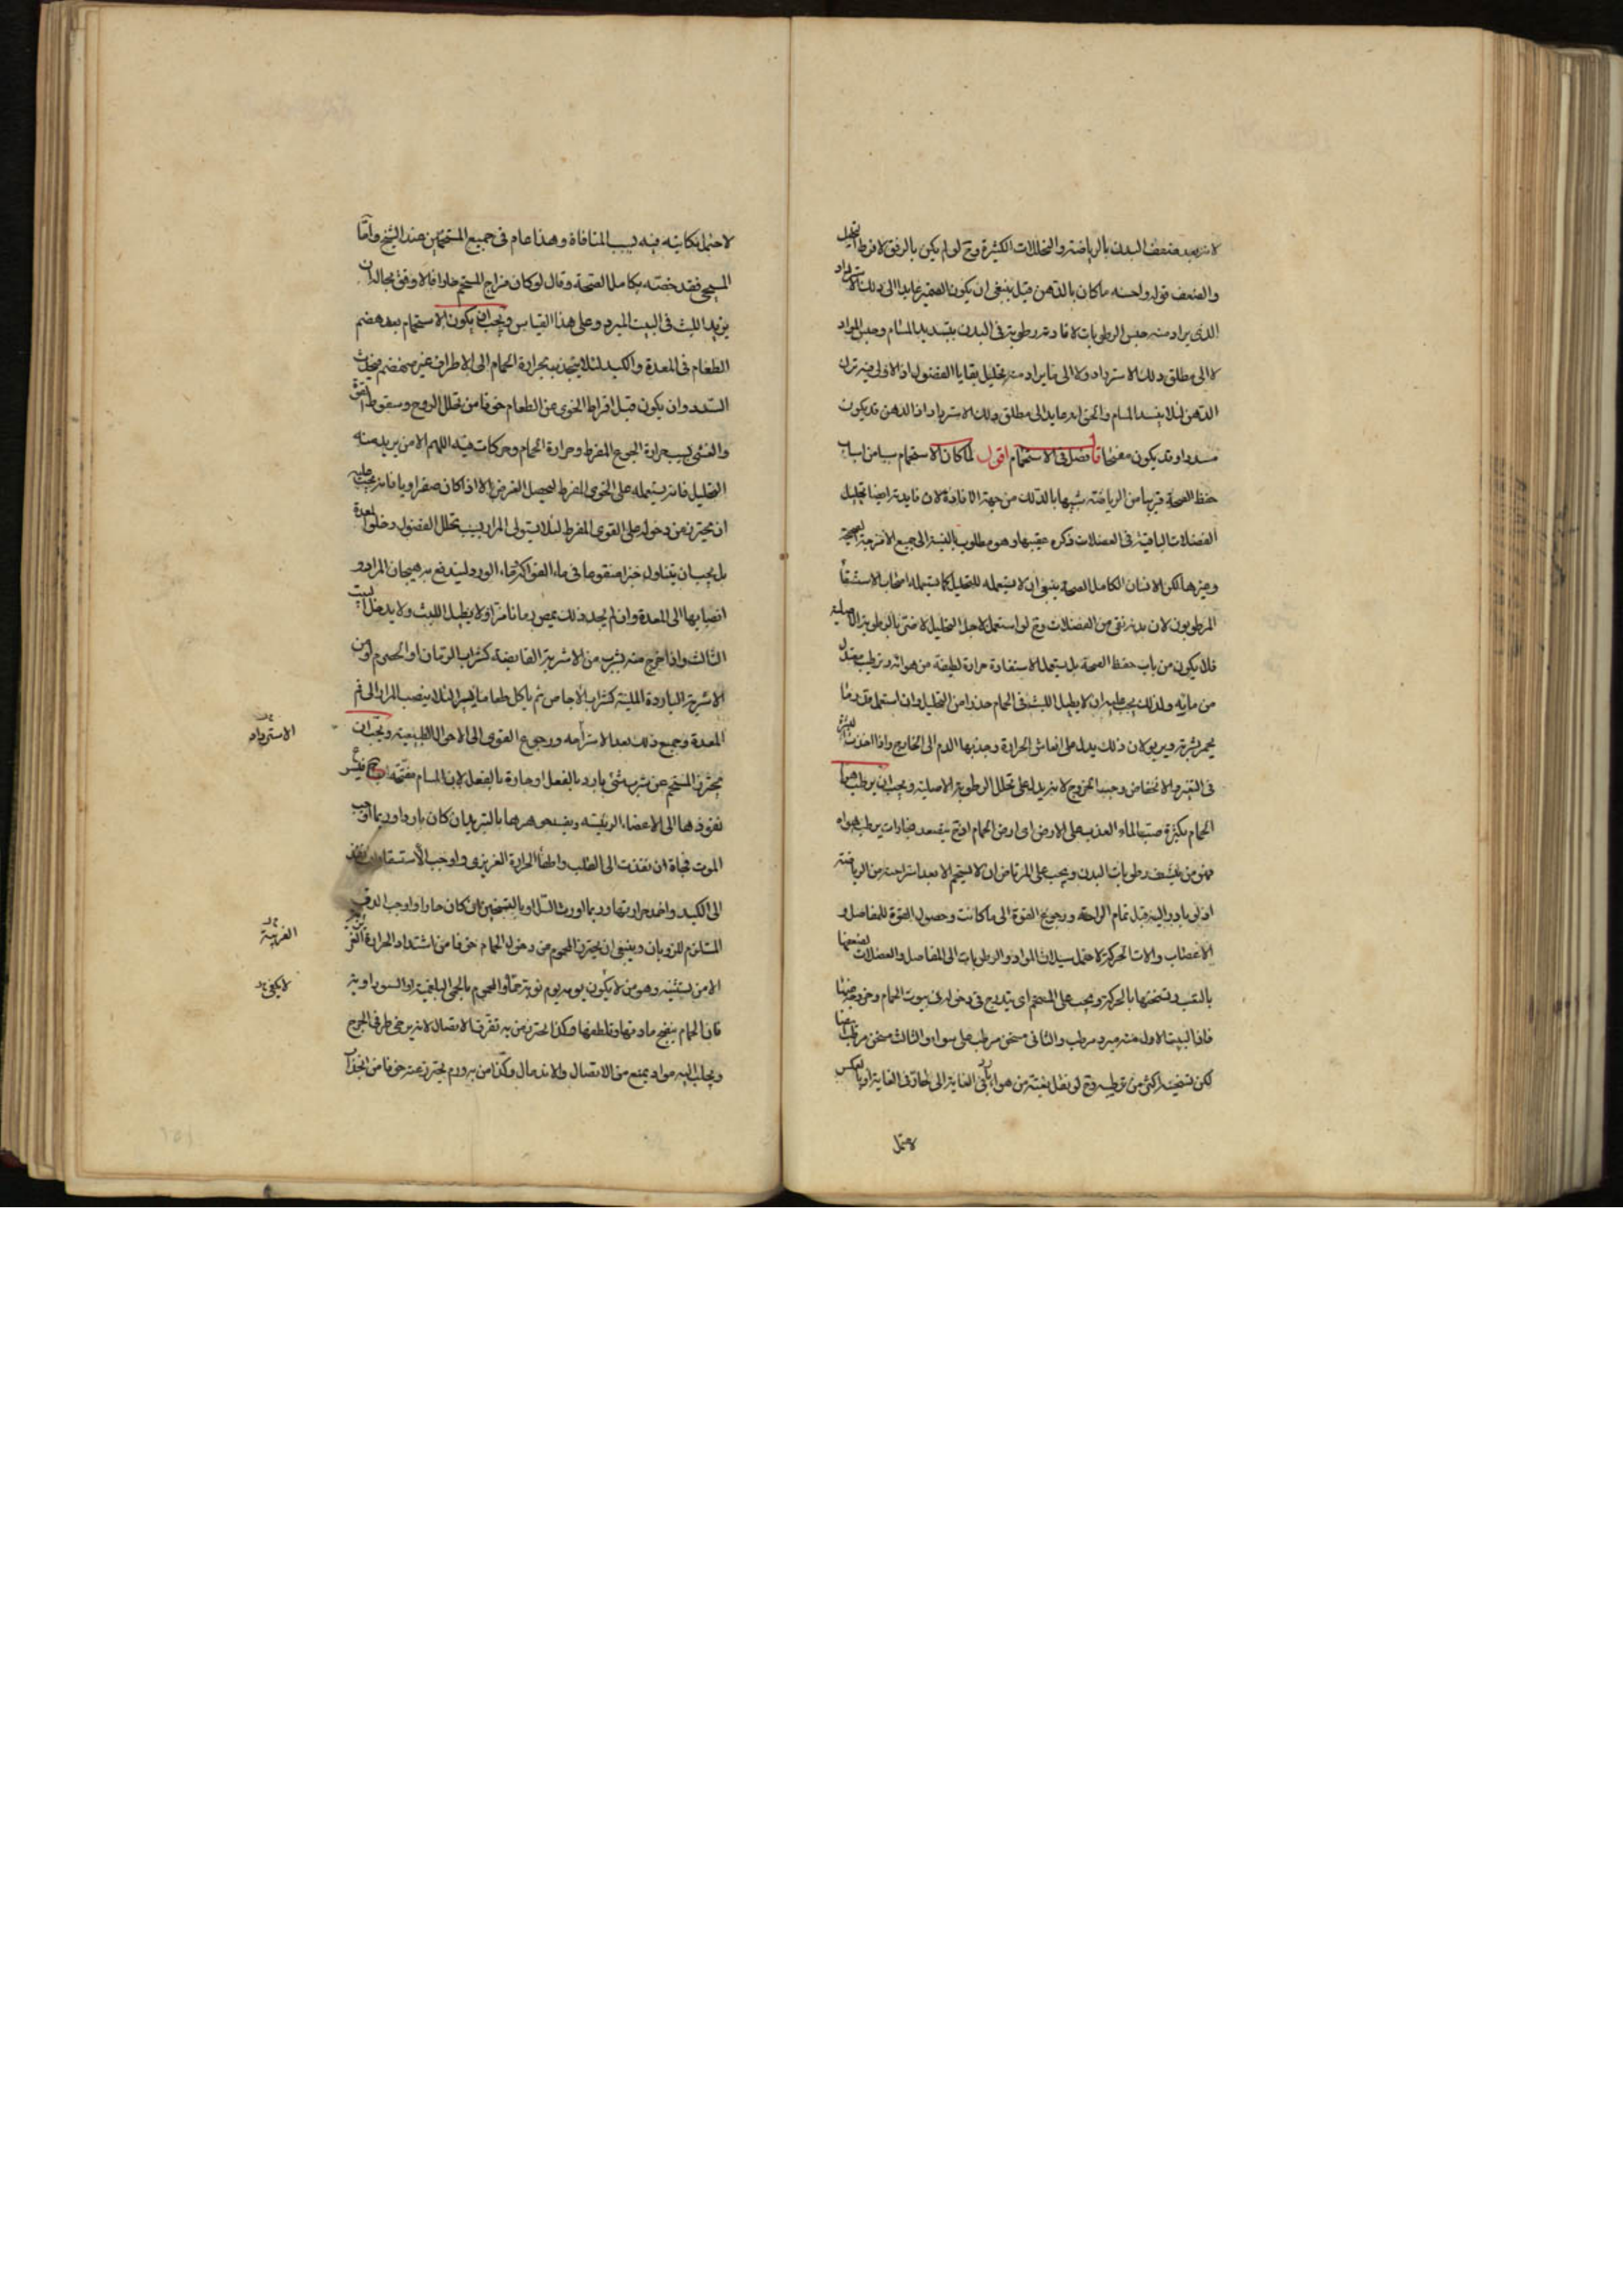 لانه بعد ضعف البدن بالرياضة والتحللات الكثيرة وح لو لم يكن بالرفق لافرط التحليل
والضعف قوله واحسنه ما كان بالدهن قيل ينبغى ان يكون الضمير عايدا الى دلك الاسترداد
الذى يراد منه حبس الرطوبات لافادته رطوبة فى البدن بتسديد المسام وحبس المواد
لا الى مطلق دلك الاسترداد ولا الى ما يراد منه تحليل بقايا الفضول اذ الاولى فيه ترك
الدهن لئلا يفسد المسام والحق انه عايد الى مطلق دلك الاسترداد اذ الدهن قد يكون
مسددا وقد يكون مفتحا قال فصل فى الاستحمام اقول لما كان الاستحمام سببا من اسباب
حفظ الصحة قريبا من الرياضة شبيها بالدلك من جهة الافادة لان فايدته ايضا تحليل
الفضلات الباقية فى العضلات ذكره عقيبها وهو مطلوب بالنسبة الى جميع الامزجة الصحيحة
وغيرها لكن الانسان الكامل الصحة ينبغى ان لا يستعمله للتحليل كما يستعمله اصحاب الاستسقا
المرطوبون لان بدنه نقى من الفضلات وح لو استعمل لاجل التحليل لافنى بالرطوبة الاصلية
فلا يكون من باب حفظ الصحة بل يستعمله لاستفادة حرارة لطيفة من هوائه وترطيب معتدل
من مائه ولذلك يجب عليه ان لا يطيل اللبث فى الحمام حذرا من التحليل وان استعمل قدر ما
يحمر بشرته ويربو لان ذلك يدل على انعاش الحرارة وجذبها الدم الى الخارج واذا اخذت البشرة
فى التغير والانخفاض وجب الخروج لانه يدل على تحلل الرطوبة الاصلية ويجب ان يرطب هواء
الحمام بكثرة صب الماء العذب على الارض اى ارض الحمام اذ ح يتصعد بخارات يرطب هواه
فيؤمن ينشف رطوبات البدن ويجب على المرتاض ان لا يستحم الا بعد استراحته من الرياضة
اذ لو بادر اليه قبل تمام الراحة ورجوع القوة الى ما كانت وحصول القوة للمفاصل و
الاعصاب والات الحركة لاحتمل سيلان المواد والرطوبات الى المفاصل والعضلات لضعفها
بالتعب وتسخنها بالحركة ويجب على المستحم اى يتدرج فى دخوله فى بيوت الحمام وخروجه منها
فان البيت الاول منه مبرد مرطب والثانى مسخن مرطب على سواء والثالث مسخن مرطب ايضا
لكن تسخينه اكثر من ترطيبه وح لو نقل بغتة من هواء بارد فى الغاية الى حار فى الغاية او بالعكس
لاحتمل
لاحتمل نكايته فيه بسبب المنافاة وهذا عام فى جميع المستحمين عند الشيخ واما
المسيحى فقد خصه بكامل الصحة وقال لو كان مزاج المستحم حارا فالاوفق بحاله ان
يزيد اللبث فى البيت المبرد وعلى هذا القياس ويجب ان يكون الاستحمام بعد هضم
الطعام فى المعدة والكبد لئلا ينجذب بحرارة الحمام الى الاطراف غير منهضم فيحدث
السدد وان يكون قبل افراط الخوى عن الطعام خوفا من تحلل الروح وسقوط القوة
والغشى بسبب حرارة الجوع المفرط وحرارة الحمام وحركات فيه اللهم الا من يريد منه
التحليل فانه يستعمله على الخوى المفرط ليحصل الغرض الا اذا كان صفراويا فانه يجب عليه
ان يحترز من دخوله على الخوى المفرط لئلا يستولى المرار بسبب تحلل الفضول وخلو المعدة
بل يجب ان يتناول خبزا منقوعا فى ماء الفواكه او ماء الورد ليندفع به هيجان المرار و
انصبابها الى المعدة وان لم يجد ذلك يمص رمانا مزا ولا يطيل اللبث ولا يدخل البيت
الثالث واذا خرج منه يشرب من الاشربة القابضة كشراب الرمان او الحصرم او من
الاشربة الباردة الملينة كشراب الاجاص ثم ياكل طعاما يسيرا لئلا ينصب المرار الى فم
المعدة وجميع ذلك بعد الاستراحه ورجوع القوى الى الاحوال الطبيعية ويجب ان
يحترز المستحم عن شرب شئ بارد بالفعل او حارة بالفعل لان المسام مفتحة ح فيتيسر
نفوذها الى الاعضاء الرئيسة ويفسد جوهرها بالتبريد ان كان باردا وربما اوجب
الموت فجاة ان نفذت الى القلب واطفا الحرارة الغريزى واوجب الاستسقا ان نفذ
الى الكبد واخمد حرارتها وربما اورث السل او بالتسخين ان كان حارا واوجب الدق
المستلزم للذوبان وينبغى ان يحترز المحموم من دخول الحمام خوفا من اشتداد الحرارة الغريبة
الا من نستثنيه وهو من لا يكون يومه يوم نوبة حماه او المحموم بالحمى البلغمية او السوداوية
فان الحمام ينضج مادتها ويلطفها وكذا يحترز من به تفرق الاتصال لانه يرخى طرفى الجرح
ويجلب اليه مواد يمنع من الاتصال والاندمال وكذا من به ورم يحترز عنه خوفا من انجذاب
الاسترداد
الغريبة
لا يكون